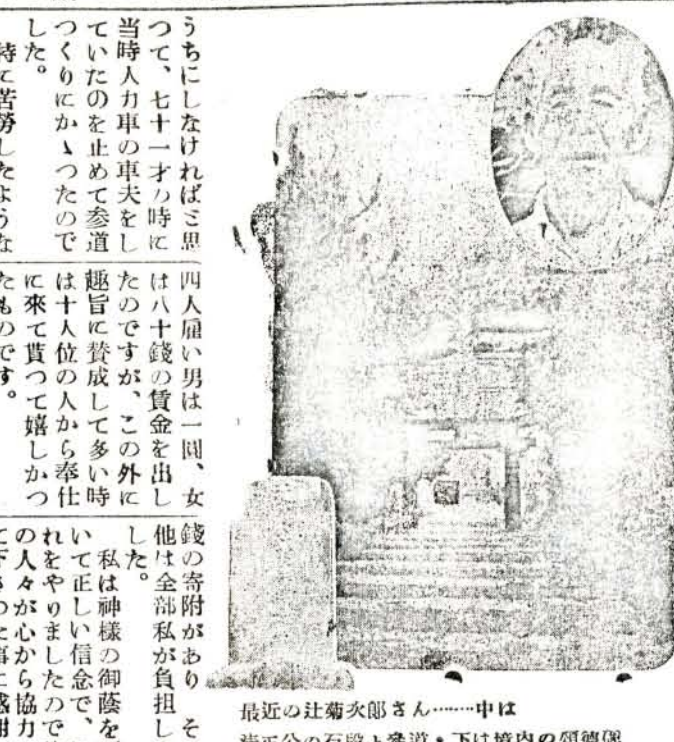 うちにしなければと思
つて、七十一才の時に
当時人力車の車夫をし
ていたのを止めて参道
つくりにかゝつたので
した。
特に苦労したような
四人雇い男は一圓、女
は八十錢の賃金を出し
たのですが、この外に
趣旨に賛成して多い時
は十人位の人から奉仕
に來て貰つて嬉しかつ
たものです。
錢の寄附があり そ
他は全部私が負担し
した。
私は神様の御蔭を
いて正しい信念で、
れをやりましたので
の人々が心から協力
て下さつた事に感謝
最近の辻菊次郎さん……中は
清正公の石段と参道・下は境内の頌徳碑